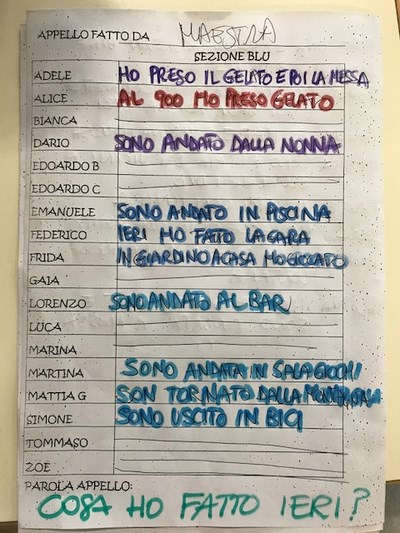 APPELLO FATTO DA MAESTRA
SEZIONE BLU
ADELE HO PRESO IL GELATO E POI LA MESSA
ALICE AL 900 HO PRESO GELATO
BIANCA
DARIO SONO ANDATO DALLA NONNA
EDOARDO B
EDOARDO C
EMANUELE SONO ANDATO IN PISCINA
FEDERICO IERI HO FATTO LA GARA
FRIDA IN GIARDINO A CASA HO GIOCATO
GAIA
LORENZO SONO ANDATO AL BAR
LUCA
MARINA
MARTINA SONO ANDATA IN SALA GIOCHI
MATTIA G SON TORNATO DALLA MONTAGNA
SIMONE SONO USCITO IN BICI
TOMMASO
ZOE
PAROLA APPELLO:
COSA HO FATTO IERI?